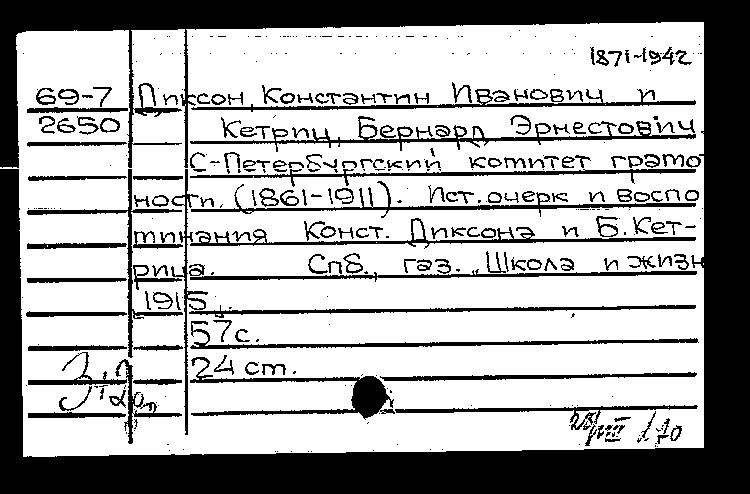 1871-1942
69-7 Диксон, Константин Иванович и
2650 Кетриц, Бернард Эрнестович.
С-Петербургский комитет грамо
ности. (1861-1911). Ист. очерк и воспо
минания Конст. Диксона и Б. Кет-
рица. Спб., газ. "Школа и жизн
1915.
57 с.
24 ст.